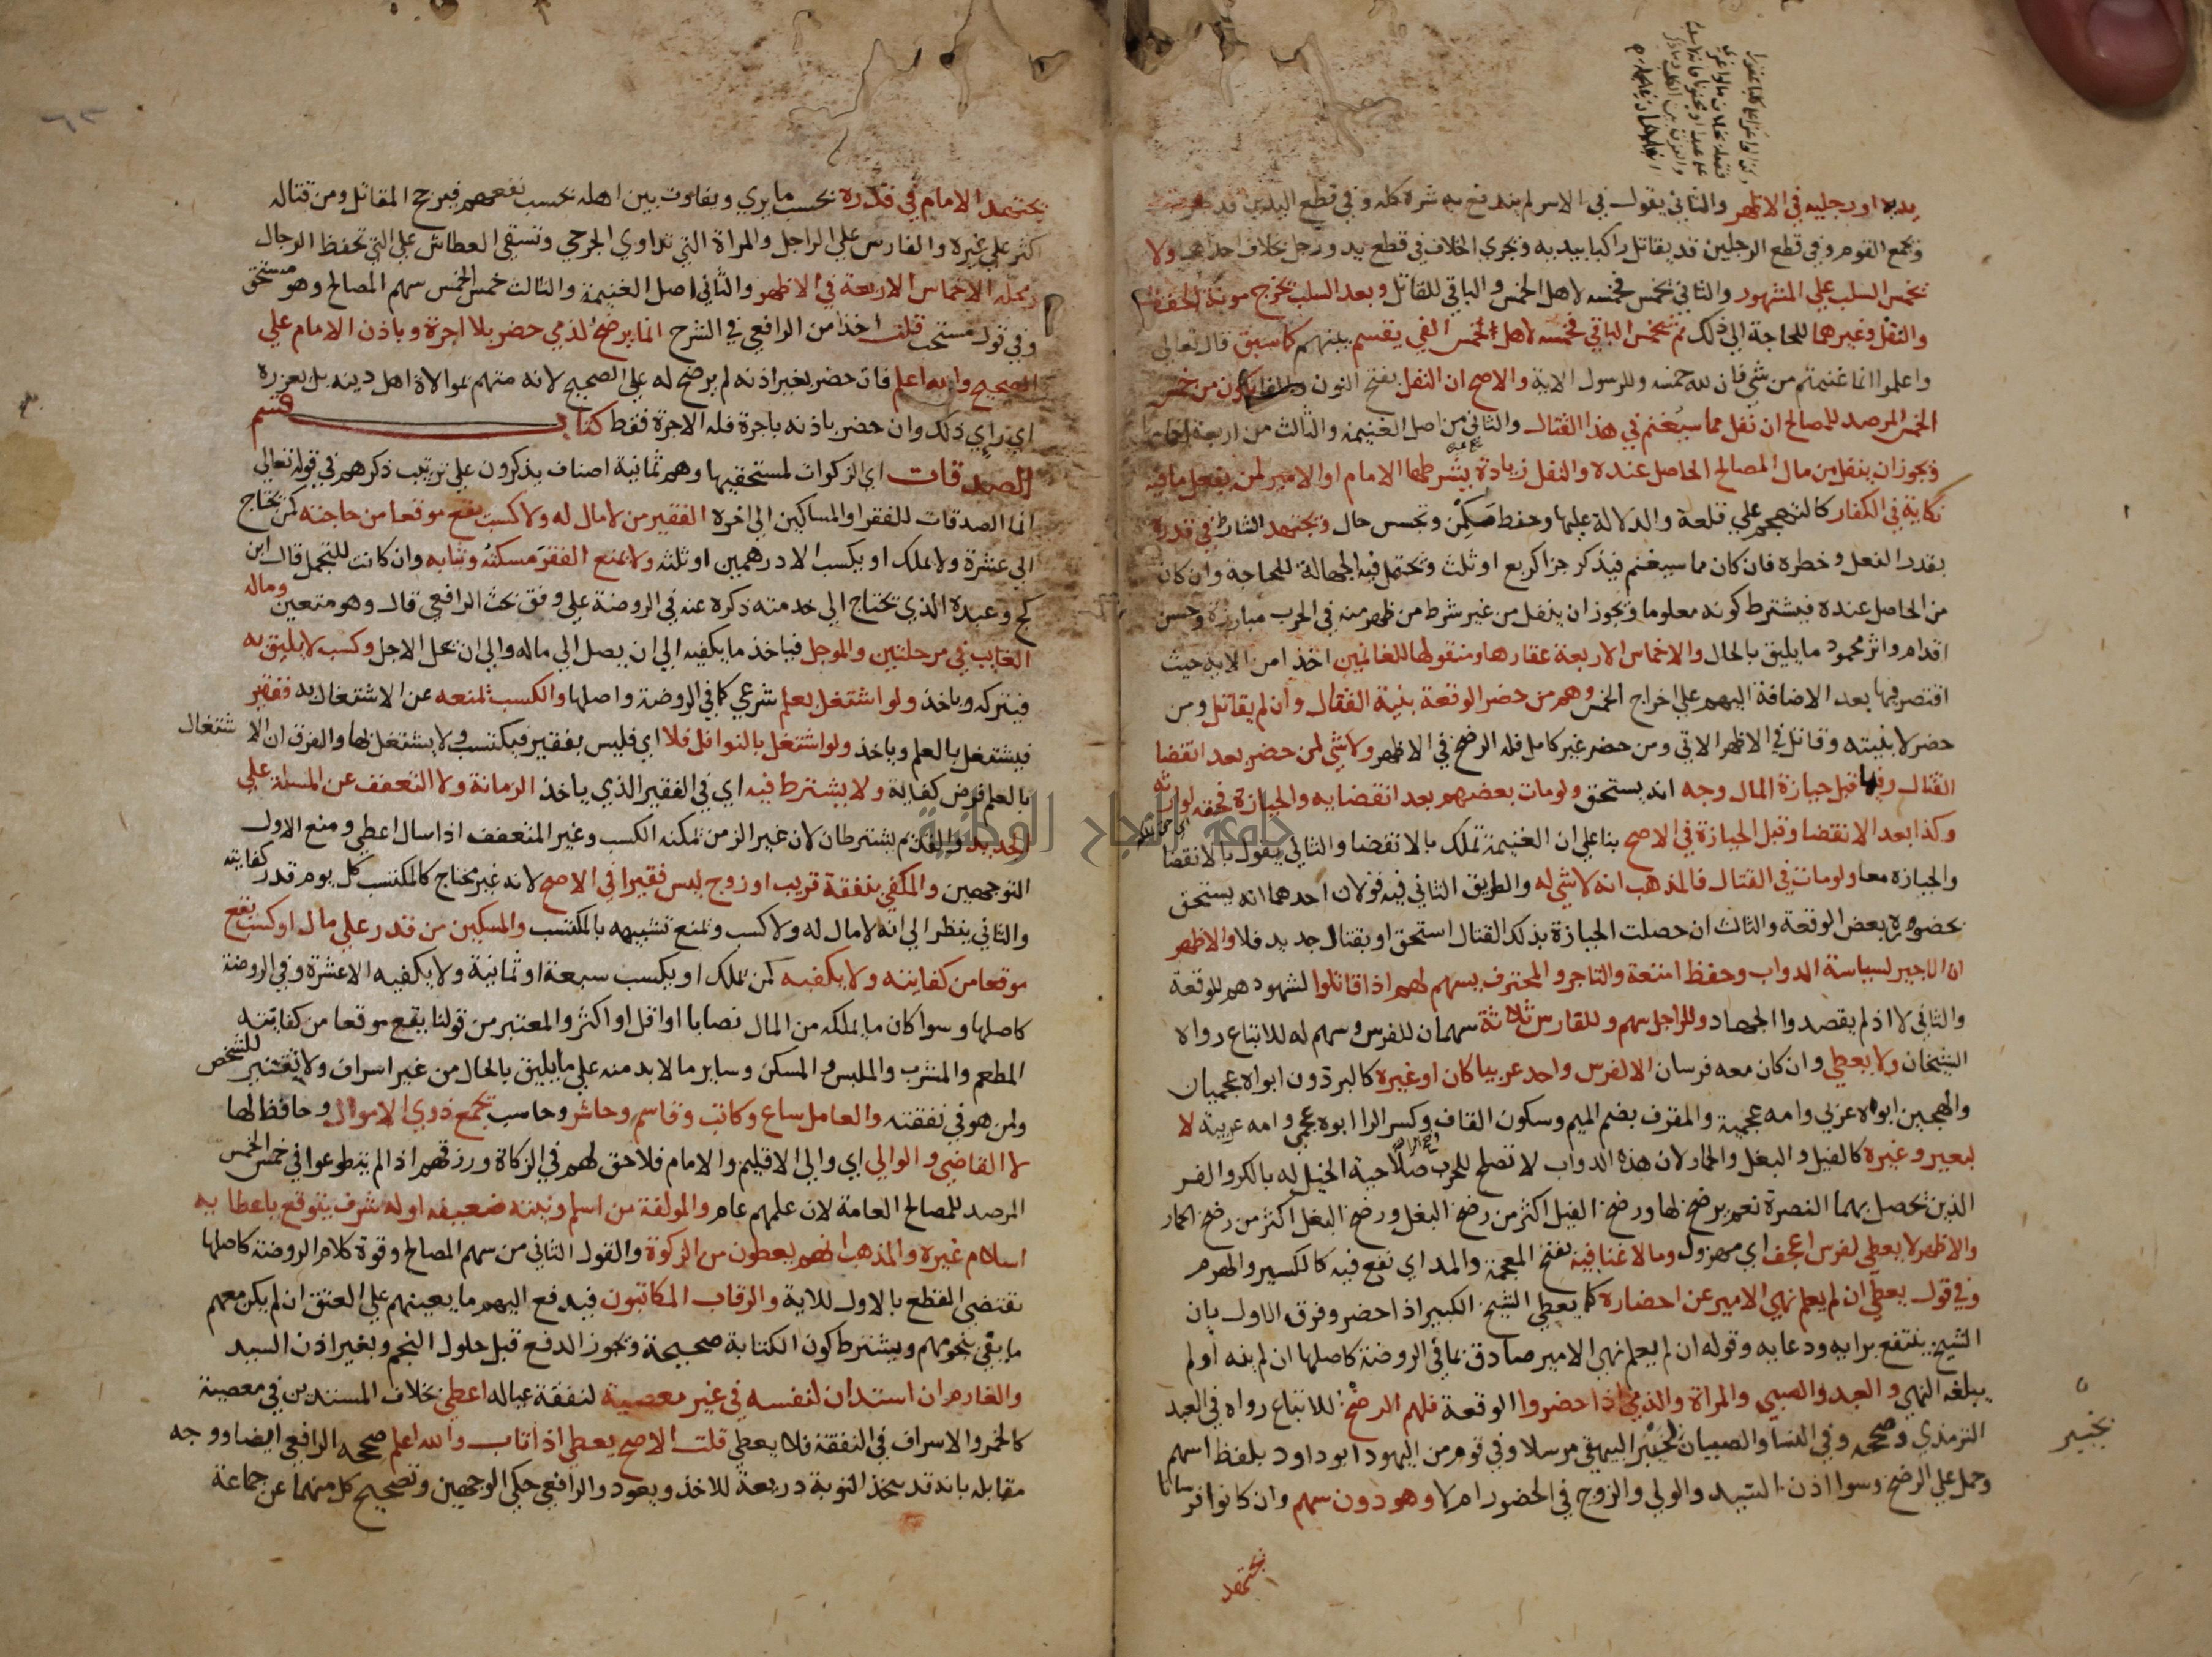 يديه او رجليه في الاظهر والثاني يقول في الاسر لم يندفع به شره كله وفي قطع اليدين قد
ويجمع القوم وفي قطع الرجلين قد يقاتل راكبا بيديه ويجري الخلاف في قطع يد ورجل بخلاف احدهما ولا
يخمس السلب علي المشهور والثاني يخمس فخمسه لاهل الخمس والباقي للقاتل وبعد السلب يخرج مونة الحفظ
والنقل وغيرهما للحاجة الي ذلك ثم يخمس الباقي فخمسه لاهل خمس الفي يقسم بينهم كما سبق قال تعالي
واعلموا انما غنمتم من شي فان لله خمسه وللرسول الاية والاصح ان النفل بفتح النون يكون من خمس
الخمس المرصد للمصالح ان نفل مما سيغنم في هذا القتال والثاني من اصل الغنيمة والثالث من اربعة اخماسها
ويجوز ان ينفل من مال المصالح الحاصل عنده والنفل زيادة يشرطها الامام او الامير لمن يفعل ما فيه
نكاية في الكفار كالتهجم علي قلعة والدلالة عليها وحفظ مكمن وتجسس حال ويجتهد الشارط في قدره
بقدر الفعل وخطره فان كان مما سيغنم فيذكر جزا كربع او ثلث ويحتمل فيه الجهالة للحاجة وان كان
من الحاصل عنده فيشترط كونه معلوما ويجوز ان ينفل من غير شرط من ظهر منه في الحرب مبارزة وحسن
اقدام واثر محمود ما يليق بالحال والاخماس الاربعة عقارها ومنقولها للغانمين اخذا من الاية حيث
اقتصر فيها بعد الاضافة اليهم علي اخراج الخمس وهم من حضر الوقعة بنية القتال وان لم يقاتل ومن
حضر لا بنيته وقاتل في الاظهر الاتي ومن حضر غير كامل فله الرضخ في الاظهر ولا شي لمن حضر بعد انقضا
القتال وفيما قبل حيازة المال وجه انه يستحق ولو مات بعضهم بعد انقضايه والحيازة فحقه لوارثه
وكذا بعد الانقضا وقبل الحيازة في الاصح بنا علي ان الغنيمة تملك بالانقضا والثاني يقول بالانقضا
والحيازة معا ولو مات في القتال فالمذهب انه لا شي له والطريق الثاني فيه قولان احدهما انه يستحق
بحضوره بعض الوقعة والثالث ان حصلت الحيازة بذلك القتال استحق او بقتال جديد فلا والاظهر
ان الاجير لسياسة الدواب وحفظ امتعة والتاجر والمحترف يسهم لهم اذا قاتلوا لشهودهم الوقعة
والثاني لا اذ لم يقصدوا الجهاد وللراجل سهم وللفارس ثلاثة سهمان للفرس وسهم له للاتباع رواه
الشيخان ولا يعطي وان كان معه فرسان الا لفرس واحد عربيا كان او غيره كالبرذون ابواه عجميان
والهجين ابوه عربي وامه عجمية والمقرف بضم الميم وسكون القاف وكسر الرا ابوه عجمي وامه عربية لا
لبعير وغيره كالفيل والبغل والحمار لان هذه الدواب لا تصلح للحرب صلاحية الخيل له بالكر والفر
الذين تحصل بهما النصرة نعم يرضخ لها ورضخ الفيل اكثر من رضخ البغل ورضخ البغل اكثر من رضخ الحمار
والاظهر لا يعطي لفرس اعجف اي مهزول وما لا غنا فيه بفتح المعجمة والمد اي نفع فيه كالكسير والهرم
وفي قول يعطي ان لم يعلم نهي الامير عن احضاره كما يعطي الشيخ الكبير اذا حضر وفرق الاول بان
الشيخ ينتفع برايه ودعايه وقوله ان لم يعلم نهي الامير صادق بما في الروضة كاصلها ان لم ينه او لم
يبلغه النهي والعبد والصبي والمراة والذمي اذا حضروا الوقعة فلهم الرضخ للاتباع رواه في العبد
الترمذي وصححه وفي النسا والصبيان البيهقي مرسلا وفي قوم من اليهود ابو داود بلفظ اسهم
وحمل علي الرضخ وسوا اذن السيد والولي والزوج في الحضور ام لا وهو دون سهم وان كانوا فرسانا
يجتهد
يجتهد الامام في قدره بحسب ما يري ويفاوت بين اهله بحسب نفعهم فيرجح المقاتل ومن قتاله
اكثر علي غيره والفارس علي الراجل والمراة التي تداوي الجرحي وتسقي العطاش علي التي تحفظ الرحال
ومحله الاخماس الاربعة في الاظهر والثاني اصل الغنيمة والثالث خمس الخمس سهم المصالح وهو مستحق
وفي قول مستحب قلت اخذا من الرافعي في الشرح انما يرضخ لذمي حضر بلا اجرة وباذن الامام علي
الصحيح والله اعلم فان حضر بغير اذنه لم يرضخ له علي الصحيح لانه متهم بموالاة اهل دينه بل يعزره
اي راي ذلك وان حضر باذنه باجرة فله الاجرة فقط كتاب قسم
الصدقات اي الزكوات لمستحقيها وهم ثمانية اصناف يذكرون علي ترتيب ذكرهم في قوله تعالي
انما الصدقات للفقرا والمساكين الي اخره الفقير من لا مال له ولا كسب يقع موقعا من حاجته كمن يحتاج
الي عشرة ولا يملك او يكسب الا درهمين او ثلثه ولا يمنع الفقر مسكنه وثيابه وان كانت للتجمل قال ابن
كج وعبده الذي يحتاج الي خدمته ذكره عنه في الروضة علي وفق بحث الرافعي قال وهو متعين وماله
الغايب في مرحلتين والموجل فياخذ ما يكفيه الي ان يصل الي ماله والي ان يحل الاجل وكسب لا يليق به
فيتركه وياخذ ولو اشتغل بعلم شرعي كما في الروضة واصلها والكسب يمنعه عن الاشتغال به ففقير
فيشتغل بالعلم وياخذ ولو اشتغل بالنوافل فلا اي فليس بفقير فيكتسب ولا يشتغل بها والفرق ان الاشتغال
بالعلم فرض كفاية ولا يشترط فيه اي في الفقير الذي ياخذ الزمانة ولا التعفف عن المسئلة علي
الجديد والقديم يشترطان لان غير الزمن يمكنه الكسب وغير المتعفف اذا سال اعطي ومنع الاول
التوجيهين والمكفي بنفقة قريب او زوج ليس فقيرا في الاصح لانه غير محتاج كالمكتسب كل يوم قدر كفايته
والثاني ينظر الي انه لا مال له ولا كسب ويمنع تشبيهه بالمكتسب والمسكين من قدر علي مال او كسب يقع
موقعا من كفايته ولا يكفيه كمن يملك او يكسب سبعة او ثمانية ولا يكفيه الا عشرة وفي الروضة
كاصلها وسوا كان ما يملكه من المال نصابا او اقل او اكثر والمعتبر من قولنا يقع موقعا من كفايته
المطعم والمشرب والملبس والمسكن وساير ما لا بد منه علي ما يليق بالحال من غير اسراف ولا تقتير للشخص
ولمن هو في نفقته والعامل ساع وكاتب وقاسم وحاشر وحاسب يجمع ذوي الاموال وحافظ لها
لا القاضي والوالي اي والي الاقليم والامام فلا حق لهم في الزكاة ورزقهم اذا لم يتطوعوا في خمس الخمس
المرصد للمصالح العامة لان عملهم عام والمولفة من اسلم ونيته ضعيفه او له شرف يتوقع باعطايه
اسلام غيره والمذهب انهم يعطون من الزكوة والقول الثاني من سهم المصالح وقوة كلام الروضة كاصلها
تقتضي القطع بالاول للاية والرقاب المكاتبون فيدفع اليهم ما يعينهم علي العتق ان لم يكن معهم
ما يفي بنجومهم ويشترط كون الكتابة صحيحة ويجوز الدفع قبل حلول النجم وبغير اذن السيد
والغارم ان استدان لنفسه في غير معصية لنفقة عياله اعطي بخلاف المستدين في معصية
كالخمر والاسراف في النفقة فلا يعطي قلت الاصح يعطي اذا تاب والله اعلم صححه الرافعي ايضا ووجه
مقابله بانه قد يتخذ التوبة ذريعة للاخذ ويعود والرافعي حكي الوجهين وتصحيح كل منهما عن جماعة